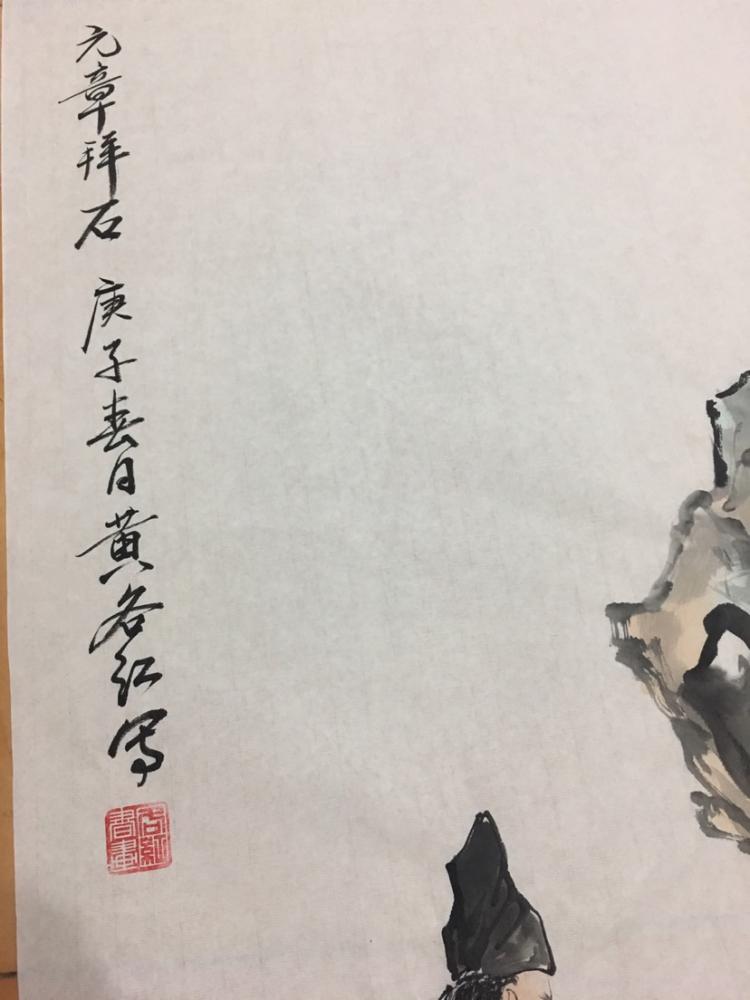 元章拜石 庚子春日黄各红写
各紅書畫